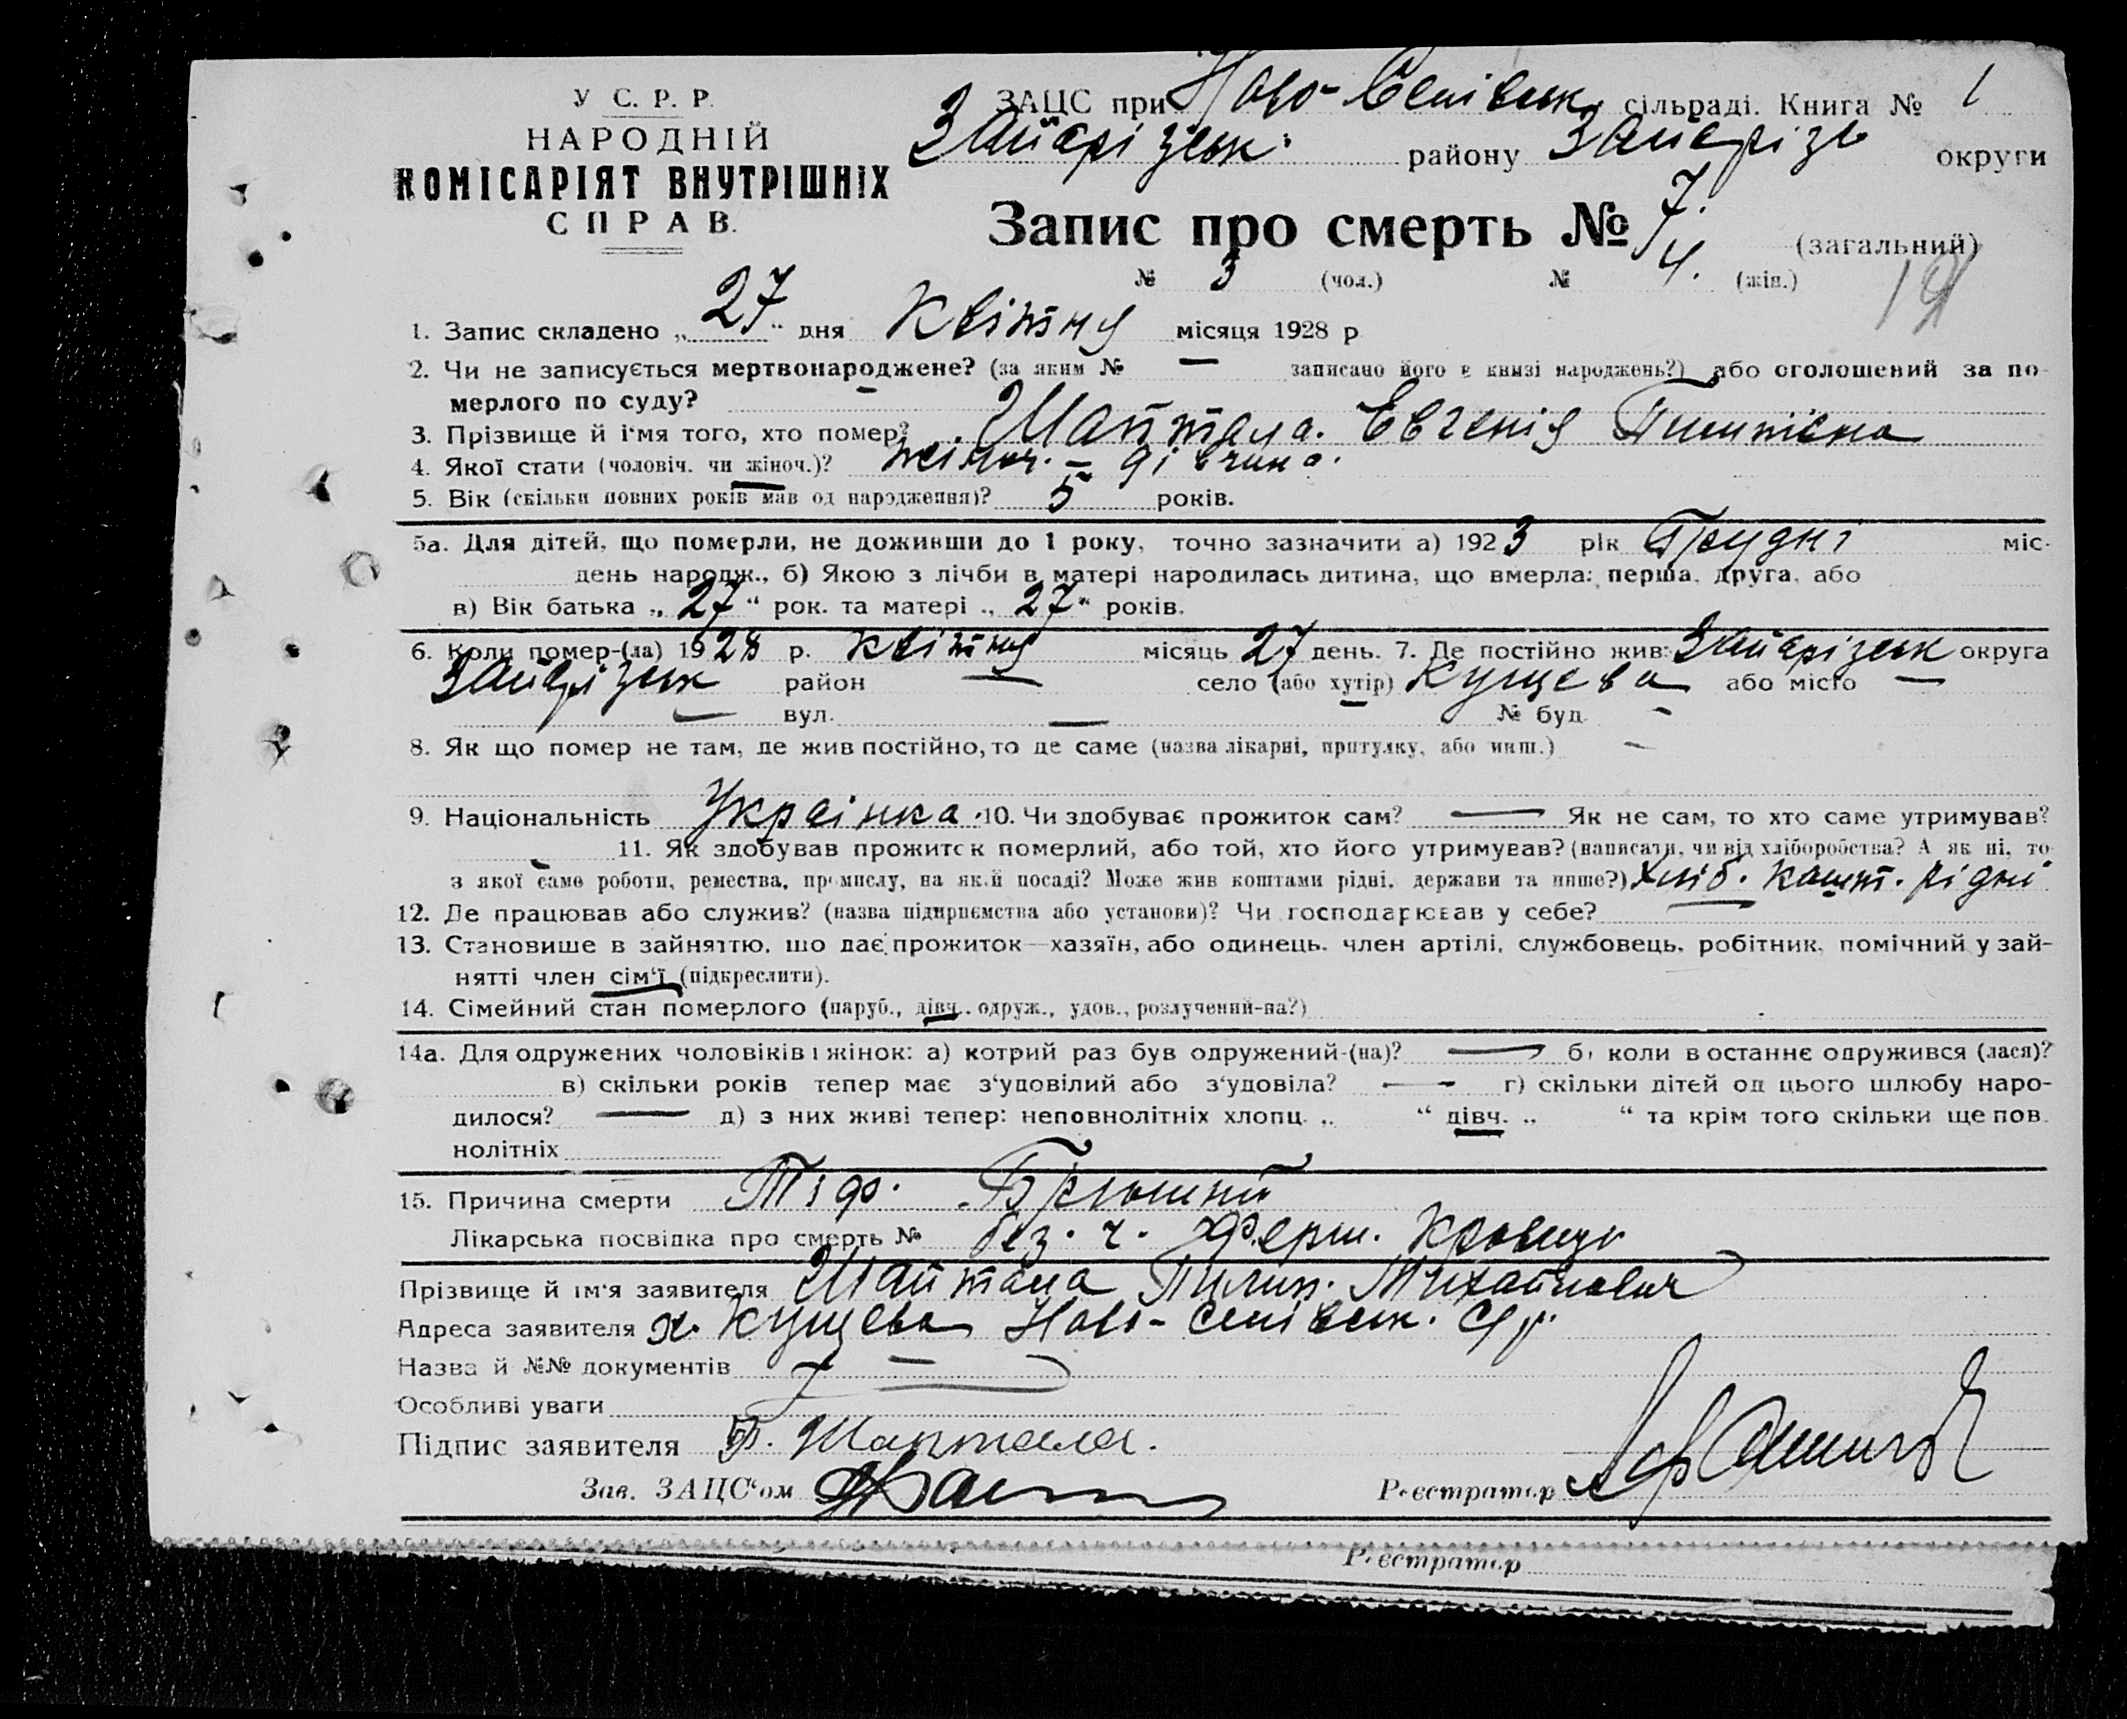 У С. Р. Р.
НАРОДНІЙ
КОМІСАРІЯТ ВНУТРІШНІХ
СПРАВ.
ЗАЦС при Ново- сільраді. Книга № 1
району округи
Запис про смерть № 7. (загальний)
№ 3 (чол.) № 4. (жін.)
19
1. Запис складено „27“ дня Квітня місяця 1928 р
2. Чи не записується мертвонароджене? (за яким № — записано його в книзі народжень?) або оголошений за по-
мерлого по суду?
3. Прізвище й ім'я того, хто помер? Шаптала. Евгенія
4. Якої стати (чоловіч. чи жіноч.)? жіноч. – дівчина.
5. Вік (скільки повних років мав од народження)? 5 років.
5а. Для дітей, що померли, не доживши до 1 року, точно зазначити а) 1923 рік Грудні міс.
день народж., б) Якою з лічби в матері народилась дитина, що вмерла: перша, друга, або
в) Вік батька „27“ рок. та матері „27“ років.
6. Коли помер-(ла) 1928 р. квітня місяць 27 день. 7. Де постійно жив: округа
район — село (або хутір) Кущева або місто —
— вул. — № буд. –
8. Як що помер не там, де жив постійно, то де саме (назва лікарні, притулку, або инш.) –
9. Національність Українка. 10. Чи здобуває прожиток сам? — Як не сам, то хто саме утримував?
11. Як здобував прожиток померлий, або той, хто його утримував? (написати, чи від хліборобства? А як ні, то
з якої саме роботи, ремества, промислу, на якій посаді? Може жив коштами рідні, держави та инше?) Хліб. кошт. рідні
12. Де працював або служив? (назва підприємства або установи)? Чи господарював у себе?
13. Становище в зайняттю, що дає прожиток—хазяїн, або одинець, член артілі, службовець, робітник, помічний у зай-
нятті член сім'ї (підкреслити).
14. Сімейний стан померлого (паруб., дівч., одруж., удов., розлучений-на?)
14а. Для одружених чоловіків і жінок: а) котрий раз був одружений-(на)? — б) коли востаннє одружився (лася)?
в) скільки років тепер має з'удовілий або з'удовіла? — г) скільки дітей од цього шлюбу наро-
дилося? — д) з них живі тепер: неповнолітніх хлопц. „ “ дівч. „ “ та крім того скільки ще пов-
нолітніх
15. Причина смерти Тіф. Брюшний
Лікарська посвідка про смерть № без. ч. Ферш.
Прізвище й ім'я заявителя Шаптала Пилип. Михайлович
Адреса заявителя х. Кущева Ново-
Назва й №№ документів —
Особливі уваги
Підпис заявителя П. Шаптала.
Зав. ЗАЦС'ом Реєстратор
Реєстратор